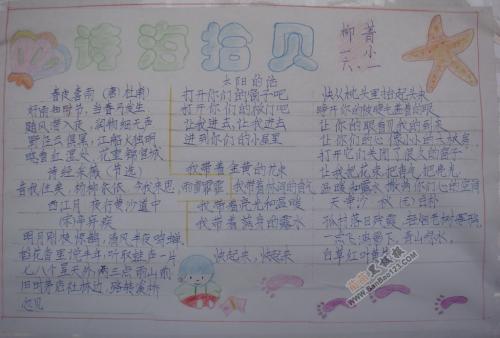 诗海拾贝
春夜喜雨 (唐) 杜甫
好雨知时节，当春乃发生
随风潜入夜，润物细无声
野径云俱黑，江船火独明
晓看红湿处，花重锦官城
诗经采薇 (节选)
昔我往矣，杨柳依依，今我来思，雨雪霏霏
西江月 夜行黄沙道中
(宋) 辛弃疾
明月别枝惊鹊，清风半夜鸣蝉，
稻花香里说丰年，听取蛙声一片
七八个星天外，两三点雨山前
旧时茅店社林边，路转溪桥
忽见
太阳的话
打开你们的窗子吧
打开你们的板门吧
让我进去，让我进去
进到你们的小屋里
我带着金黄的花束
我带着林间的香气
我带着亮光和温暖
我带着满身的露水
快起来，快起来
快从枕头里抬起头来
睁开你的被睫毛盖着的眼
让你的眼看见我的到来
让你们的心
打开它们关闭了很久的窗子
让我把花束，把香气，把亮光，
温暖和露水 撒满你们心的空间
天净沙 秋 (元) 白朴
孤村落日残霞，轻烟老树寒鸦，
一点飞鸿影下，青山绿水，
白草红叶黄花